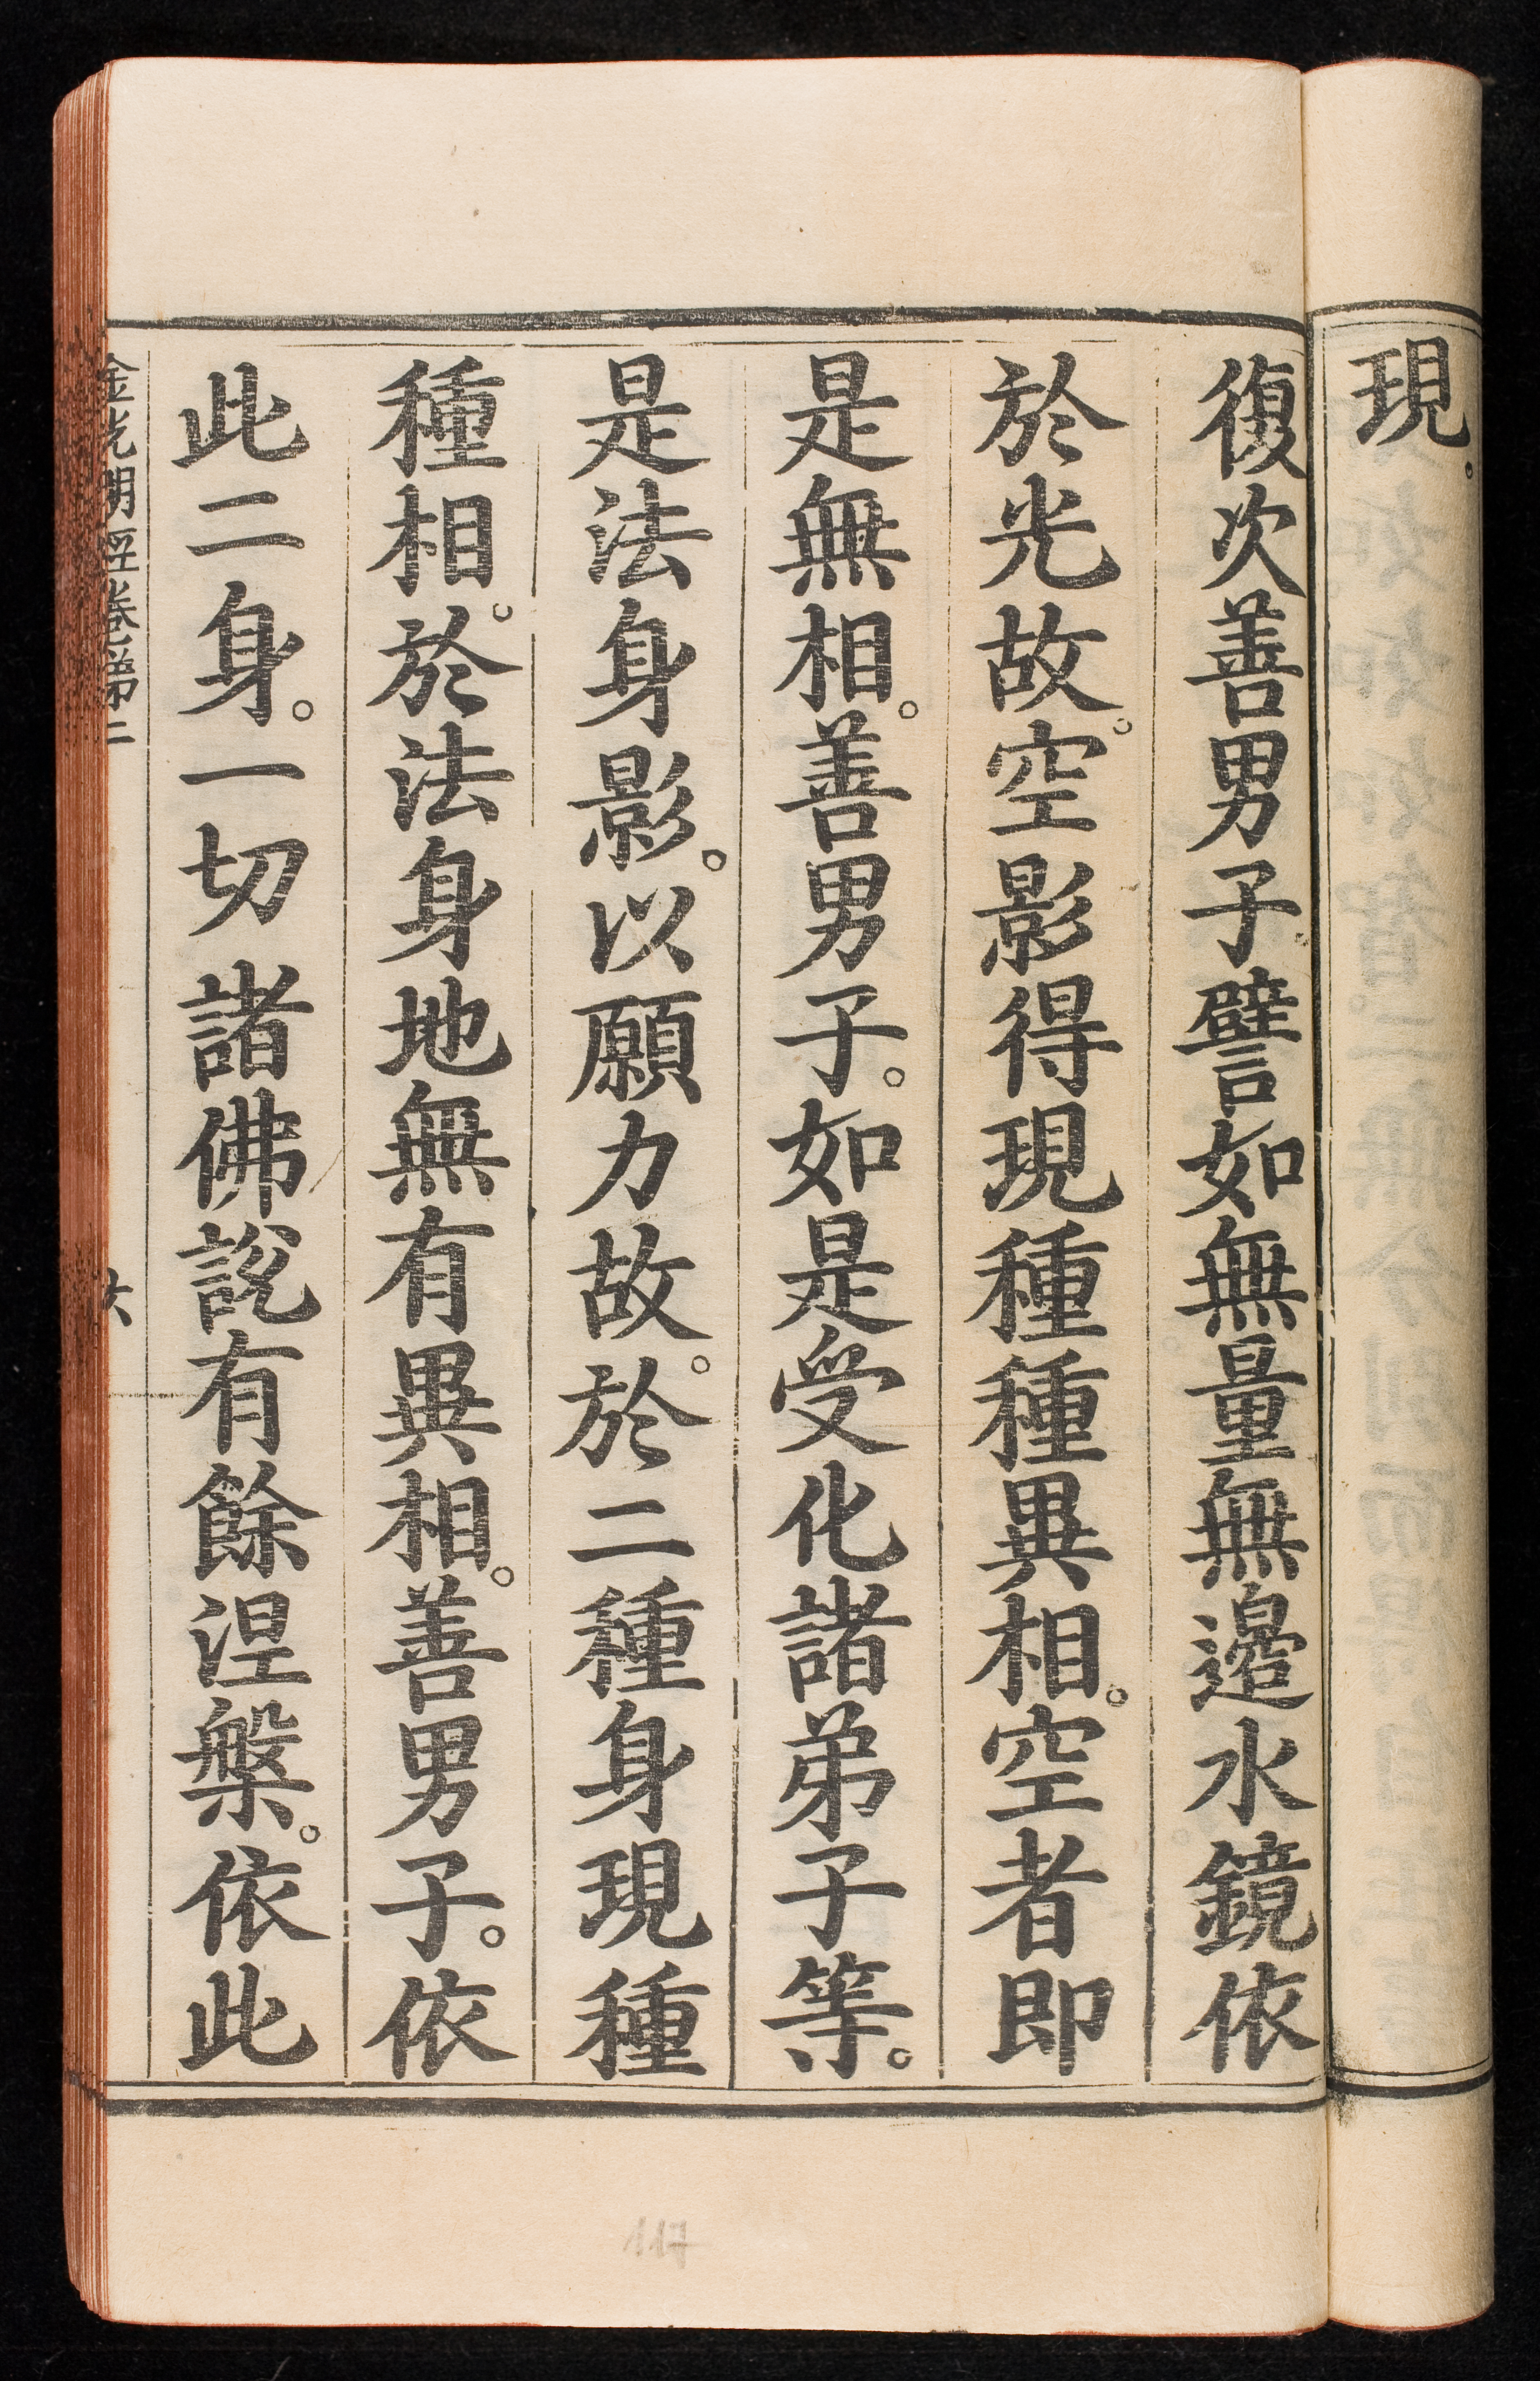 現。
復次善男子譬如無量無邊水鏡依
於光故。空影得現種種異相。空者即
是無相。善男子。如是受化諸弟子等。
是法身影。以願力故。於二種身現種
種相。於法身地無有異相。善男子。依
此二身。一切諸佛說有餘涅槃。依此
金光明經卷第二 六